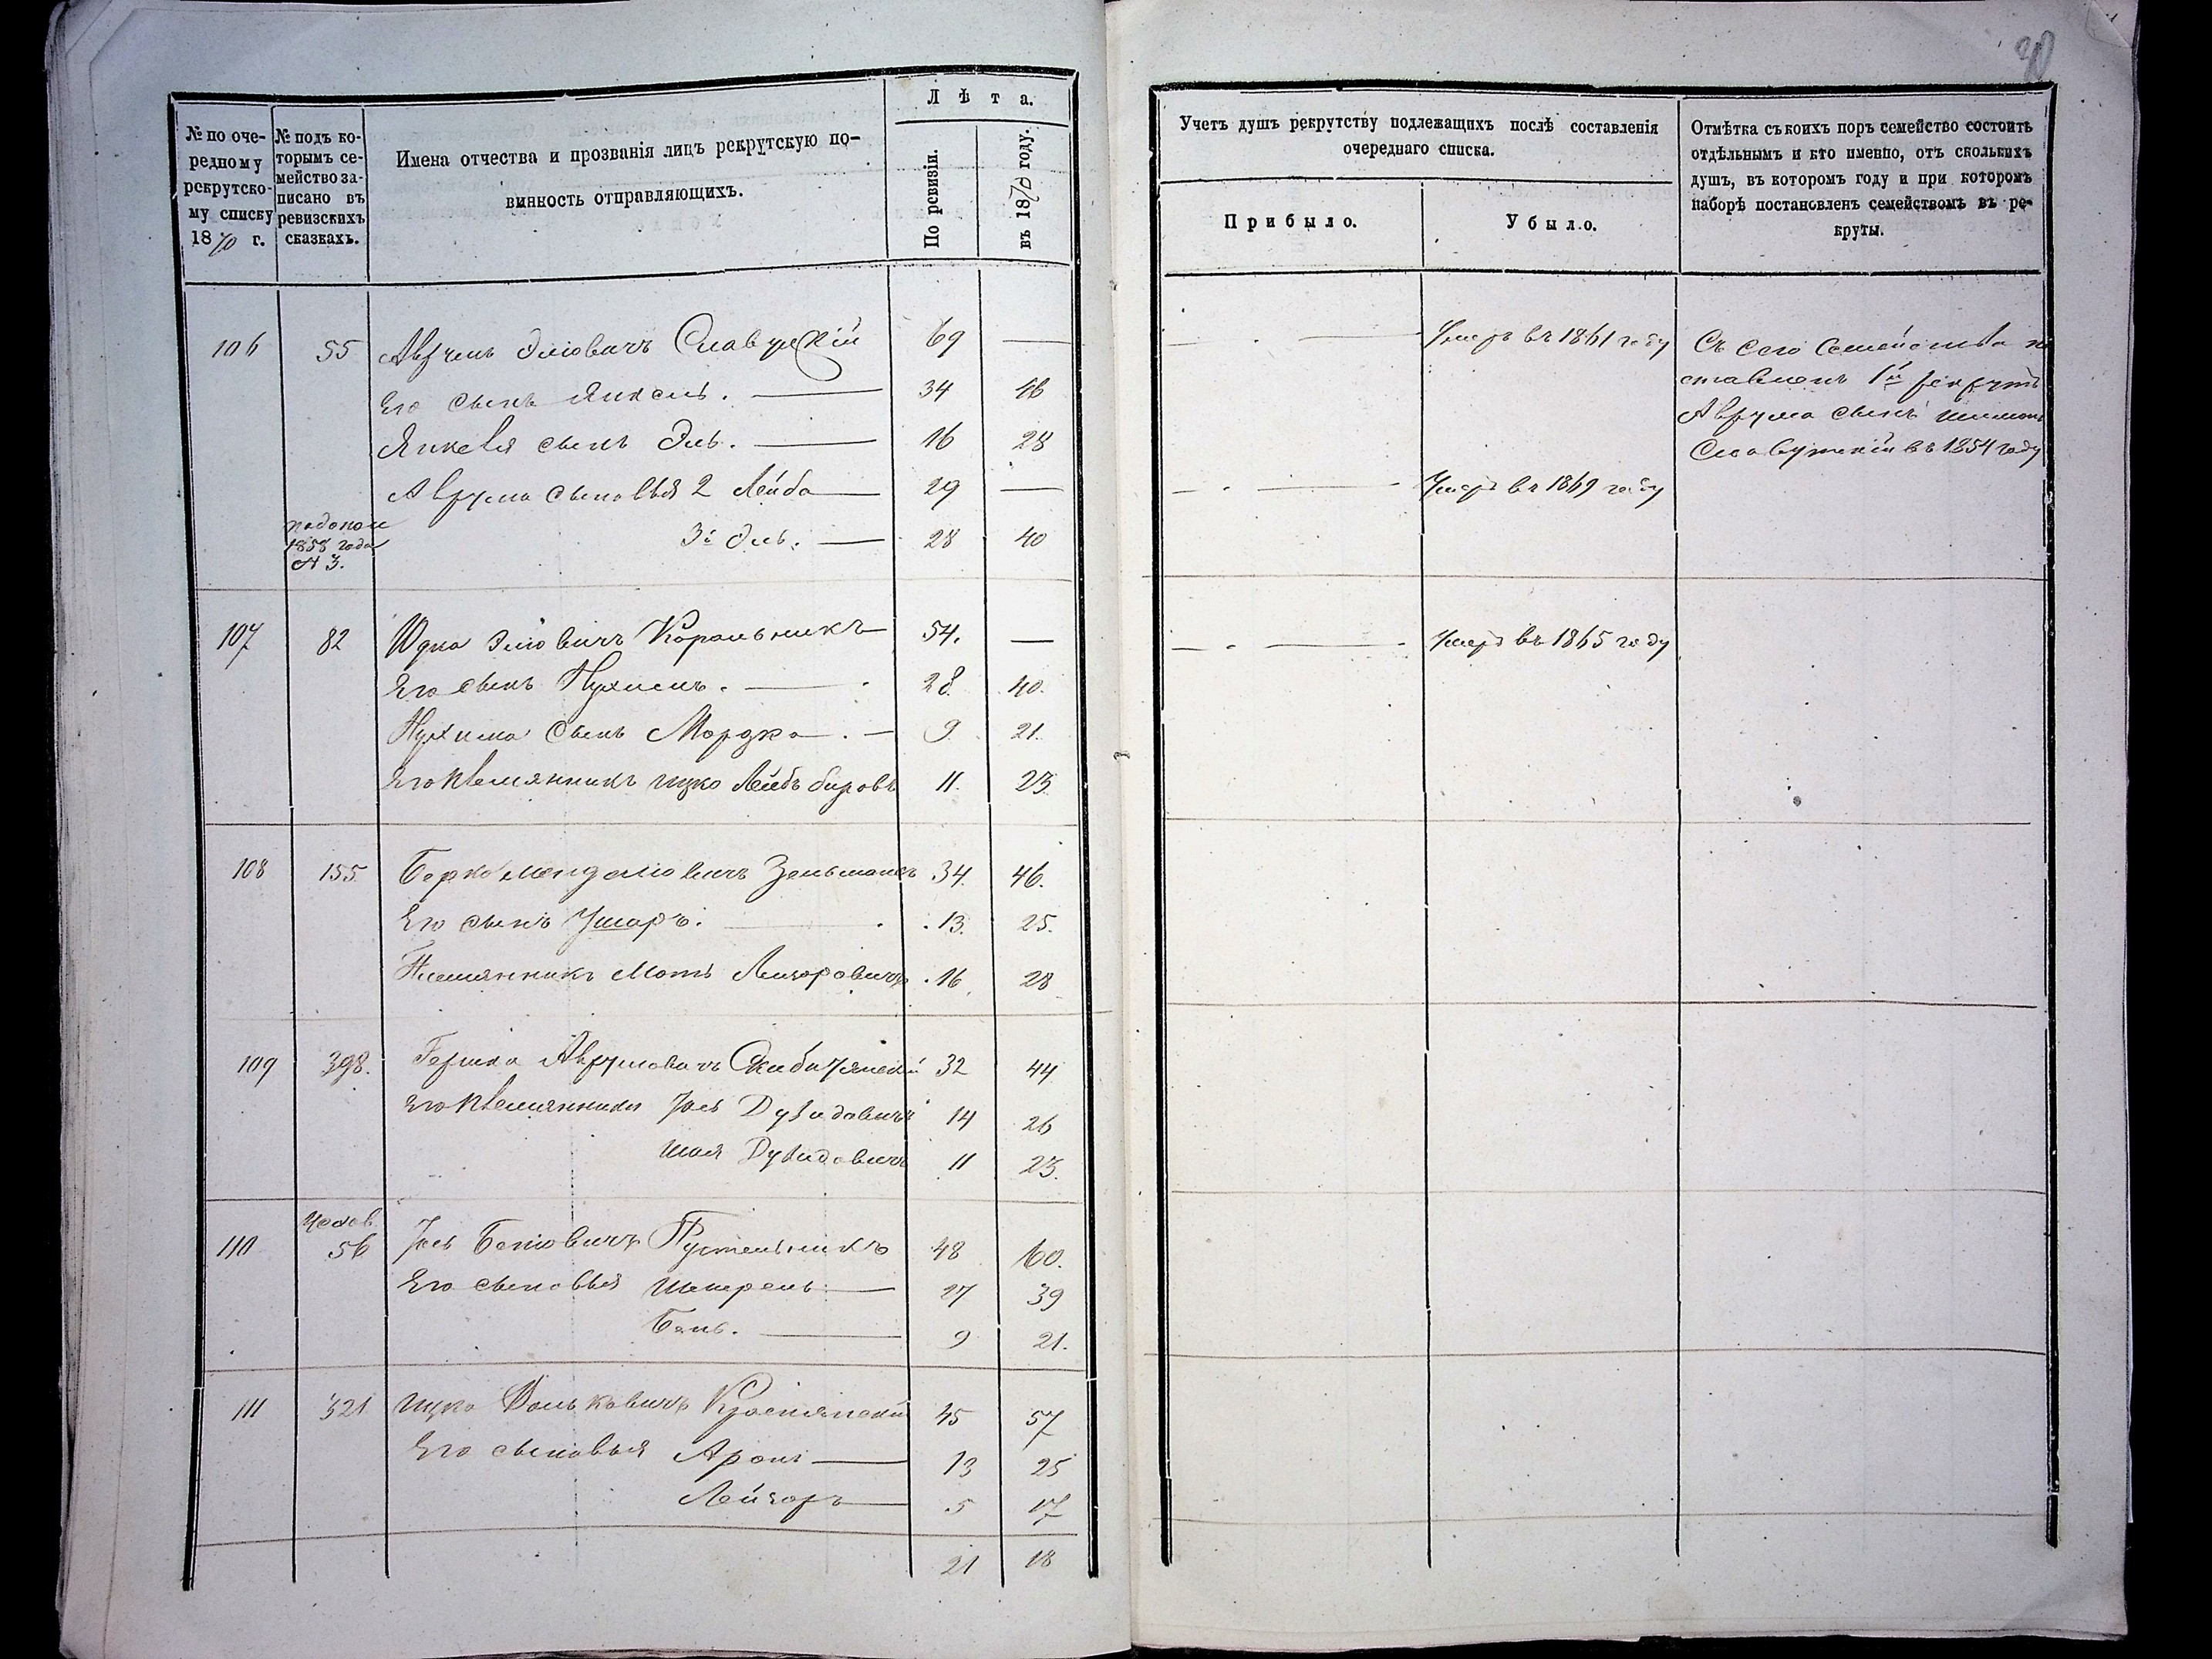 № по оче-
редному
рекрутско-
му списку
1870 г.
№ подъ ко-
торымъ се-
мейство за-
писано въ
ревизскихъ
сказкахъ.
Имена отчества и прозванія лицъ рекрутскую по-
винность отправляющихъ.
Лѣта.
По ревизіи.
въ 1870 году.
Учетъ душъ рекрутству подлежащихъ послѣ составленія
очереднаго списка.
Прибыло.
Убыло.
Отмѣтка съ коихъ поръ семейство состоитъ
отдѣльнымъ и кто именно, отъ сколькихъ
душъ, въ которомъ году и при которомъ
наборѣ постановленъ семействомъ въ ре-
круты.
106 55 Аврумъ Эліовичъ Славутскій 69 — Умеръ въ 1861 году
Его сынъ Янкель. 34 46
Янкеля сынъ Эль. 16 28
Аврума сыновья 2 Лейба 29 — Умеръ въ 1869 году
3й Эль. 28 40
1858 года
№ 3.
Съ сего Семейства по
ставленъ 1й рекрутъ
Аврума сынъ
Славутскій въ 1854 году
107 82 Юдка Эліовичъ Корольникъ 54. — Умеръ въ 1865 году
Его сынъ Нухимъ. 28. 40.
Нухима Сынъ Мордко. 9. 21.
Его племянникъ Ицко Лейбъ Беровъ 11. 23.
108 155 Берко Мендэліовичъ Зельманъ 34. 46.
Его сынъ Ушеръ. 13. 25.
Племянникъ Моть Лейзоровичъ 16. 28
109 398. Гершко Аврумовичъ 32 44
Его племянники Іось Дувидовичъ 14 26
Шая Дувидовичъ 11 23.
110 56 Іось Беніовичъ Пустельникъ 48 60.
Его сыновья 27 39
Бень. 9 21.
111 321 Ицко Вольковичъ Краснянскій 45 57
Его сыновья Аронъ 13 25
Лейзоръ 5 17
21 18